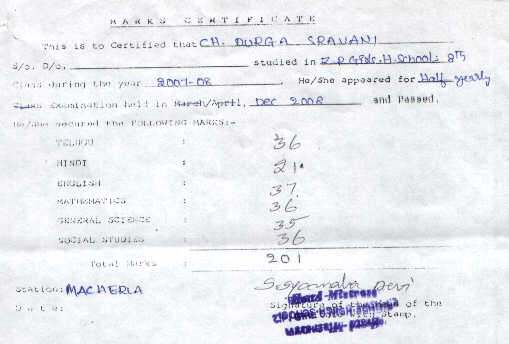 MARKS CERTIFICATE
This is to Certified that CH. DURGA SRAVANI
S/o. D/o. studied in Z.P Girls.H.School: 8th
Class during the year 2007-08 He/She appeared for Half-yearly
Class Examination held in March/April, Dec 2008 and Passed.
He/She secured the FOLLOWING MARKS:-
TELUGU : 36
HINDI : 21
ENGLISH : 37
MATHEMATICS : 36
GENERAL SCIENCE : 35
SOCIAL STUDIES : 36
Total Marks : 201
Station: MACHERLA
Devi
Signature of the of the
Head Mistress
Date: with Stamp.